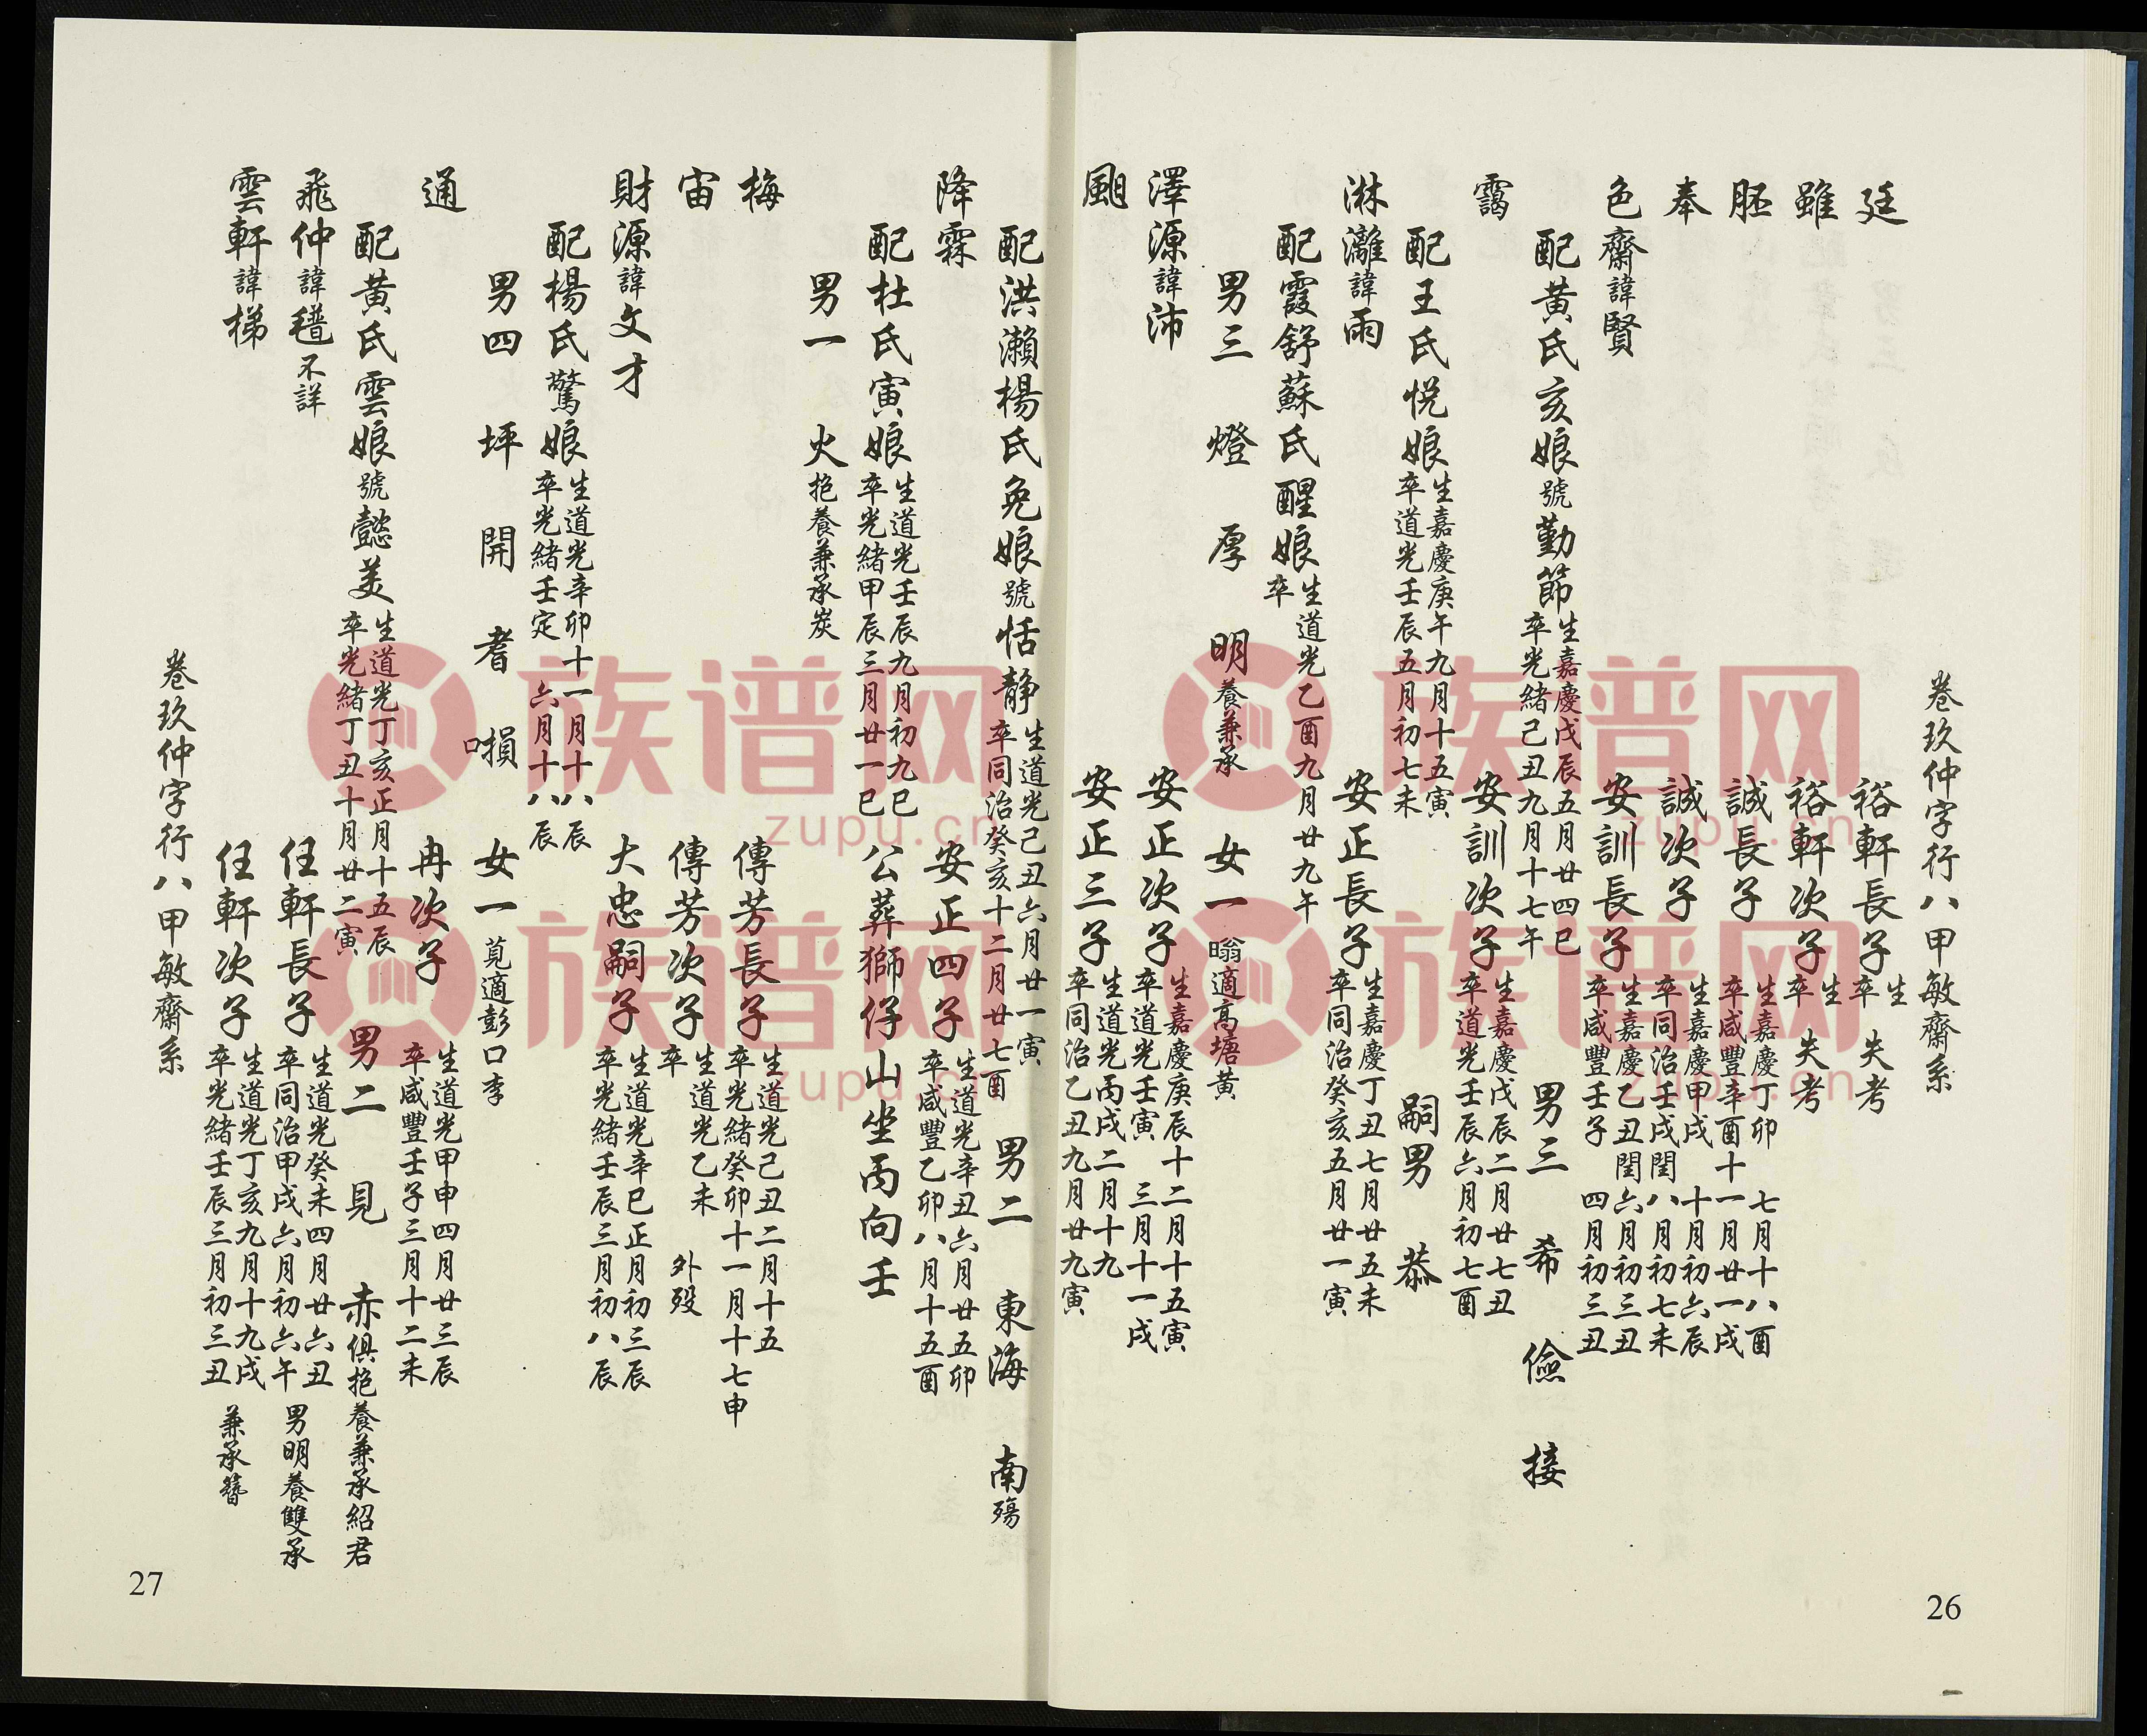 卷玖仲字行八甲敏齋系
廷 裕軒長子 生 卒 失考
雖 裕軒次子 生 卒 失考
胚 誠長子 生嘉慶丁卯七月十八酉 卒咸豐辛酉十一月廿一戌
奉 誠次子 生嘉慶甲戌十月初六辰 卒同治壬戌閏八月初七未
色齋諱賢 安訓長子 生嘉慶乙丑閏六月初三丑 卒咸豐壬子四月初三丑
配黃氏亥娘號勤節 生嘉慶戊辰五月廿四巳 卒光緒己丑九月十七午 男三 希 儉 接
靄 安訓次子 生嘉慶戊辰二月廿七丑 卒道光壬辰六月初七酉
配王氏悅娘 生嘉慶庚午九月十五寅 卒道光壬辰五月初七未 嗣男 恭
淋灕諱雨 安正長子 生嘉慶丁丑七月廿五未 卒同治癸亥五月廿一寅
配霞舒蘇氏醒娘 生道光乙酉九月廿九午 卒
男三 燈 厚 明養兼承 女一 暡適高塘黃
澤源諱沛 安正次子 生嘉慶庚辰十二月十五寅 卒道光壬寅三月十一戌
颶 安正三子 生道光丙戌二月十九 卒同治乙丑九月廿九寅
26
配洪瀨楊氏免娘號恬靜 生道光己丑六月廿一寅 卒同治癸亥十二月廿七酉 男二 東海 南殤
降霖 安正四子 生道光辛丑六月廿五卯 卒咸豐乙卯八月十五酉
配杜氏寅娘 生道光壬辰九月初九巳 卒光緒甲辰三月廿一巳 公葬獅仔山坐丙向壬
男一 火抱養兼承炭
梅 傳芳長子 生道光己丑二月十五 卒光緒癸卯十一月十七申
宙 傳芳次子 生道光乙未 卒 外歿
財源諱文才 大忠嗣子 生道光辛巳正月初三辰 卒光緒壬辰三月初八辰
配楊氏驚娘 生道光辛卯十一月十八辰 卒光緒壬定六月十八辰
男四 坪 開 耆 嗩 女一 莧適彭口李
通 冉次子 生道光甲申四月廿三辰 卒咸豐壬子三月十二未
配黃氏雲娘號懿美 生道光丁亥正月十五辰 卒光緒丁丑十月廿二寅 男二 見 赤俱抱養兼承紹君
飛仲諱䅾不詳 任軒長子 生道光癸未四月廿六丑 卒同治甲戌六月初六午 男明養雙承
雲軒諱梯 任軒次子 生道光丁亥九月十九戌 卒光緒壬辰三月初三丑 兼承簪
卷玖仲字行八甲敏齋系
27
族谱网
zupu.cn
族谱网
zupu.cn
族谱网
zupu.cn
族谱网
zupu.cn